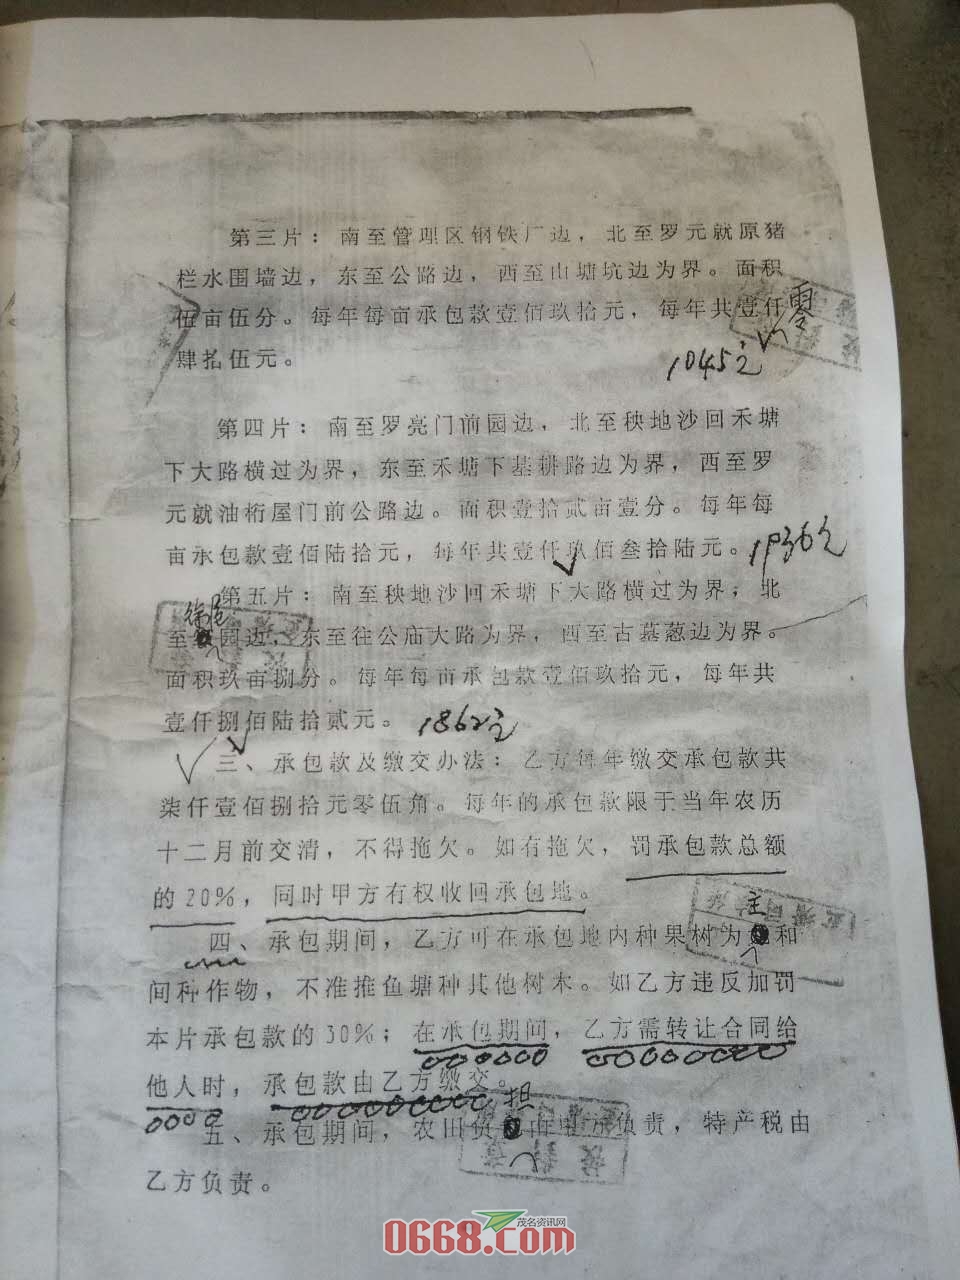 第三片：南至管理区钢铁厂边，北至罗元就原猪
栏水围墙边，东至公路边，西至山塘坑边为界。面积
伍亩伍分。每年每亩承包款壹佰玖拾元，每年共壹仟零
肆拾伍元。
1045元
第四片：南至罗亮门前园边，北至秧地沙回禾塘
下大路横过为界，东至禾塘下基耕路边为界，西至罗
元就油桁屋门前公路边。面积壹拾贰亩壹分。每年每
亩承包款壹佰陆拾元，每年共壹仟玖佰叁拾陆元。1936元
第五片：南至秧地沙回禾塘下大路横过为界；北
至园边，东至往公庙大路为界，西至古墓葱边为界。
面积玖亩捌分。每年每亩承包款壹佰玖拾元，每年共
壹仟捌佰陆拾贰元。1862元
三、承包款及缴交办法：乙方每年缴交承包款共
柒仟壹佰捌拾元零伍角。每年的承包款限于当年农历
十二月前交清，不得拖欠。如有拖欠，罚承包款总额
的20%，同时甲方有权收回承包地。
四、承包期间，乙方可在承包地内种果树为主和
间种作物，不准推鱼塘种其他树木。如乙方违反加罚
本片承包款的30%；在承包期间，乙方需转让合同给
他人时，承包款由乙方缴交。
五、承包期间，农田负担由甲方负责，特产税由
乙方负责。
茂名资讯网
0668.com